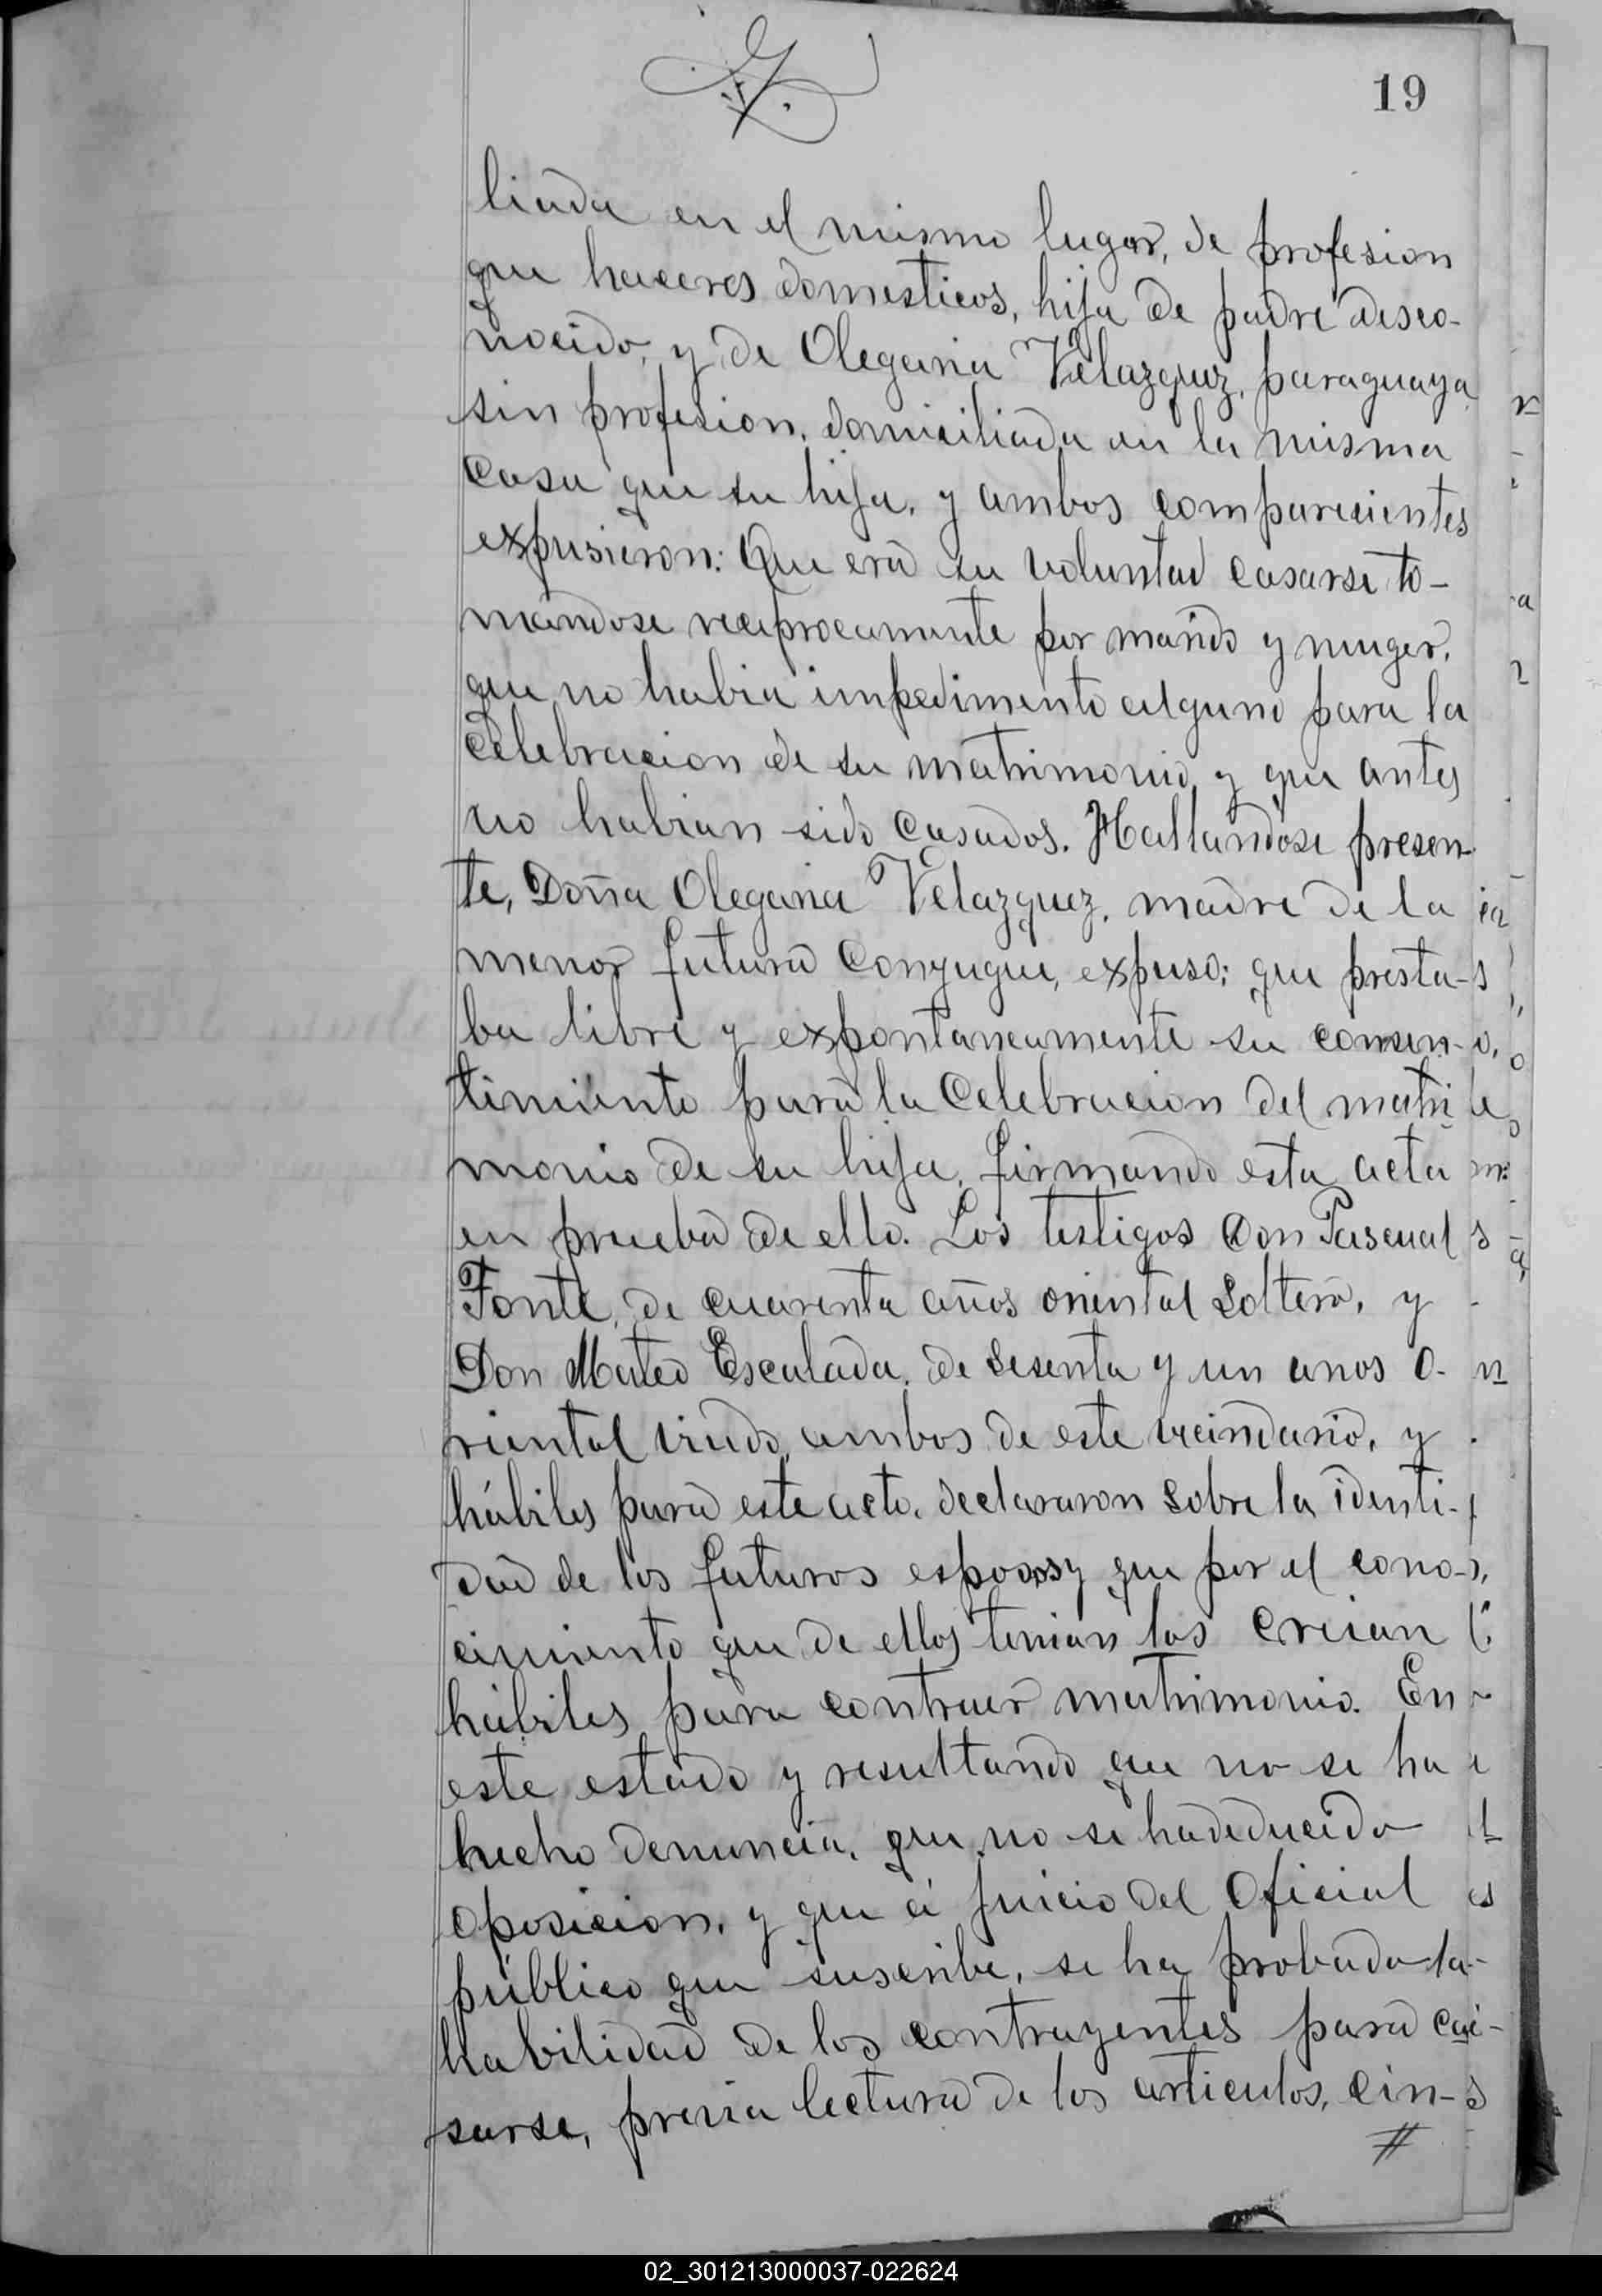 19
liada en el mismo lugar, de profesion
que haceres domesticos, hija de padre desco-
nocido, y de Olegaria Velazquez, paraguaya,
sin profesion, domiciliada en la misma
casa que su hija, y ambos comparecientes
expusieron: Que era su voluntad casarse to-
mandose reciprocamente por marido y muger,
que no habia impedimento alguno para la
celebracion de su matrimonio, y que antes
no habian sido casados. Hallandose presen-
te, Doña Olegaria Velazquez, madre de la
menor futura conyugue, expuso; que presta-
ba libre y expontaneamente su consen-
timiento para la celebracion del matri
monio de su hija, firmando esta acta
en prueba de ello. Los testigos Don Pascual
Fonte, de cuarenta años oriental soltero, y
Don Mateo Escalada, de sesenta y un anos o-
riental viudo, ambos de este vecindario, y
hábiles para este acto, declararon sobre la identi-
dad de los futuros esposos y que por el cono-
cimiento que de ellos tenian los creian
hábiles para contraer matrimonio. En
este estado y resultando que no se ha
hecho denuncia, que no se ha deducido
oposicion, y que á juicio del Oficial
público que suscribe, se ha probado la
habilidad de los contrayentes para ca-
sarse, previa lectura de los articulos, cin-
02_301213000037-022624